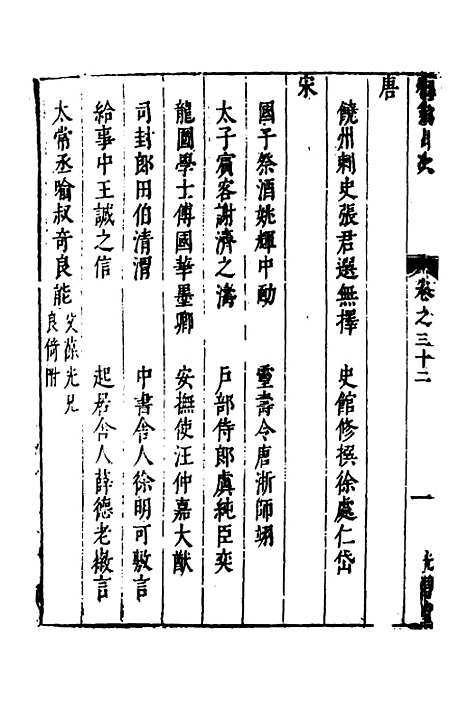 卷之三十二
一
唐
饒州刺史張君選無擇 史館修撰徐處仁岱
宋
國子祭酒姚輝中勔 靈壽令唐浙師翊
太子賓客謝濟之濤 戶部侍郎虞純臣奕
龍圖學士傅國華墨卿 安撫使汪仲嘉大猷
司封郎田伯清渭 中書舍人徐明可敷言
給事中王誠之信 起居舍人薛德老徽言
太常丞喻叔奇良能 父葆光兄
良倚附